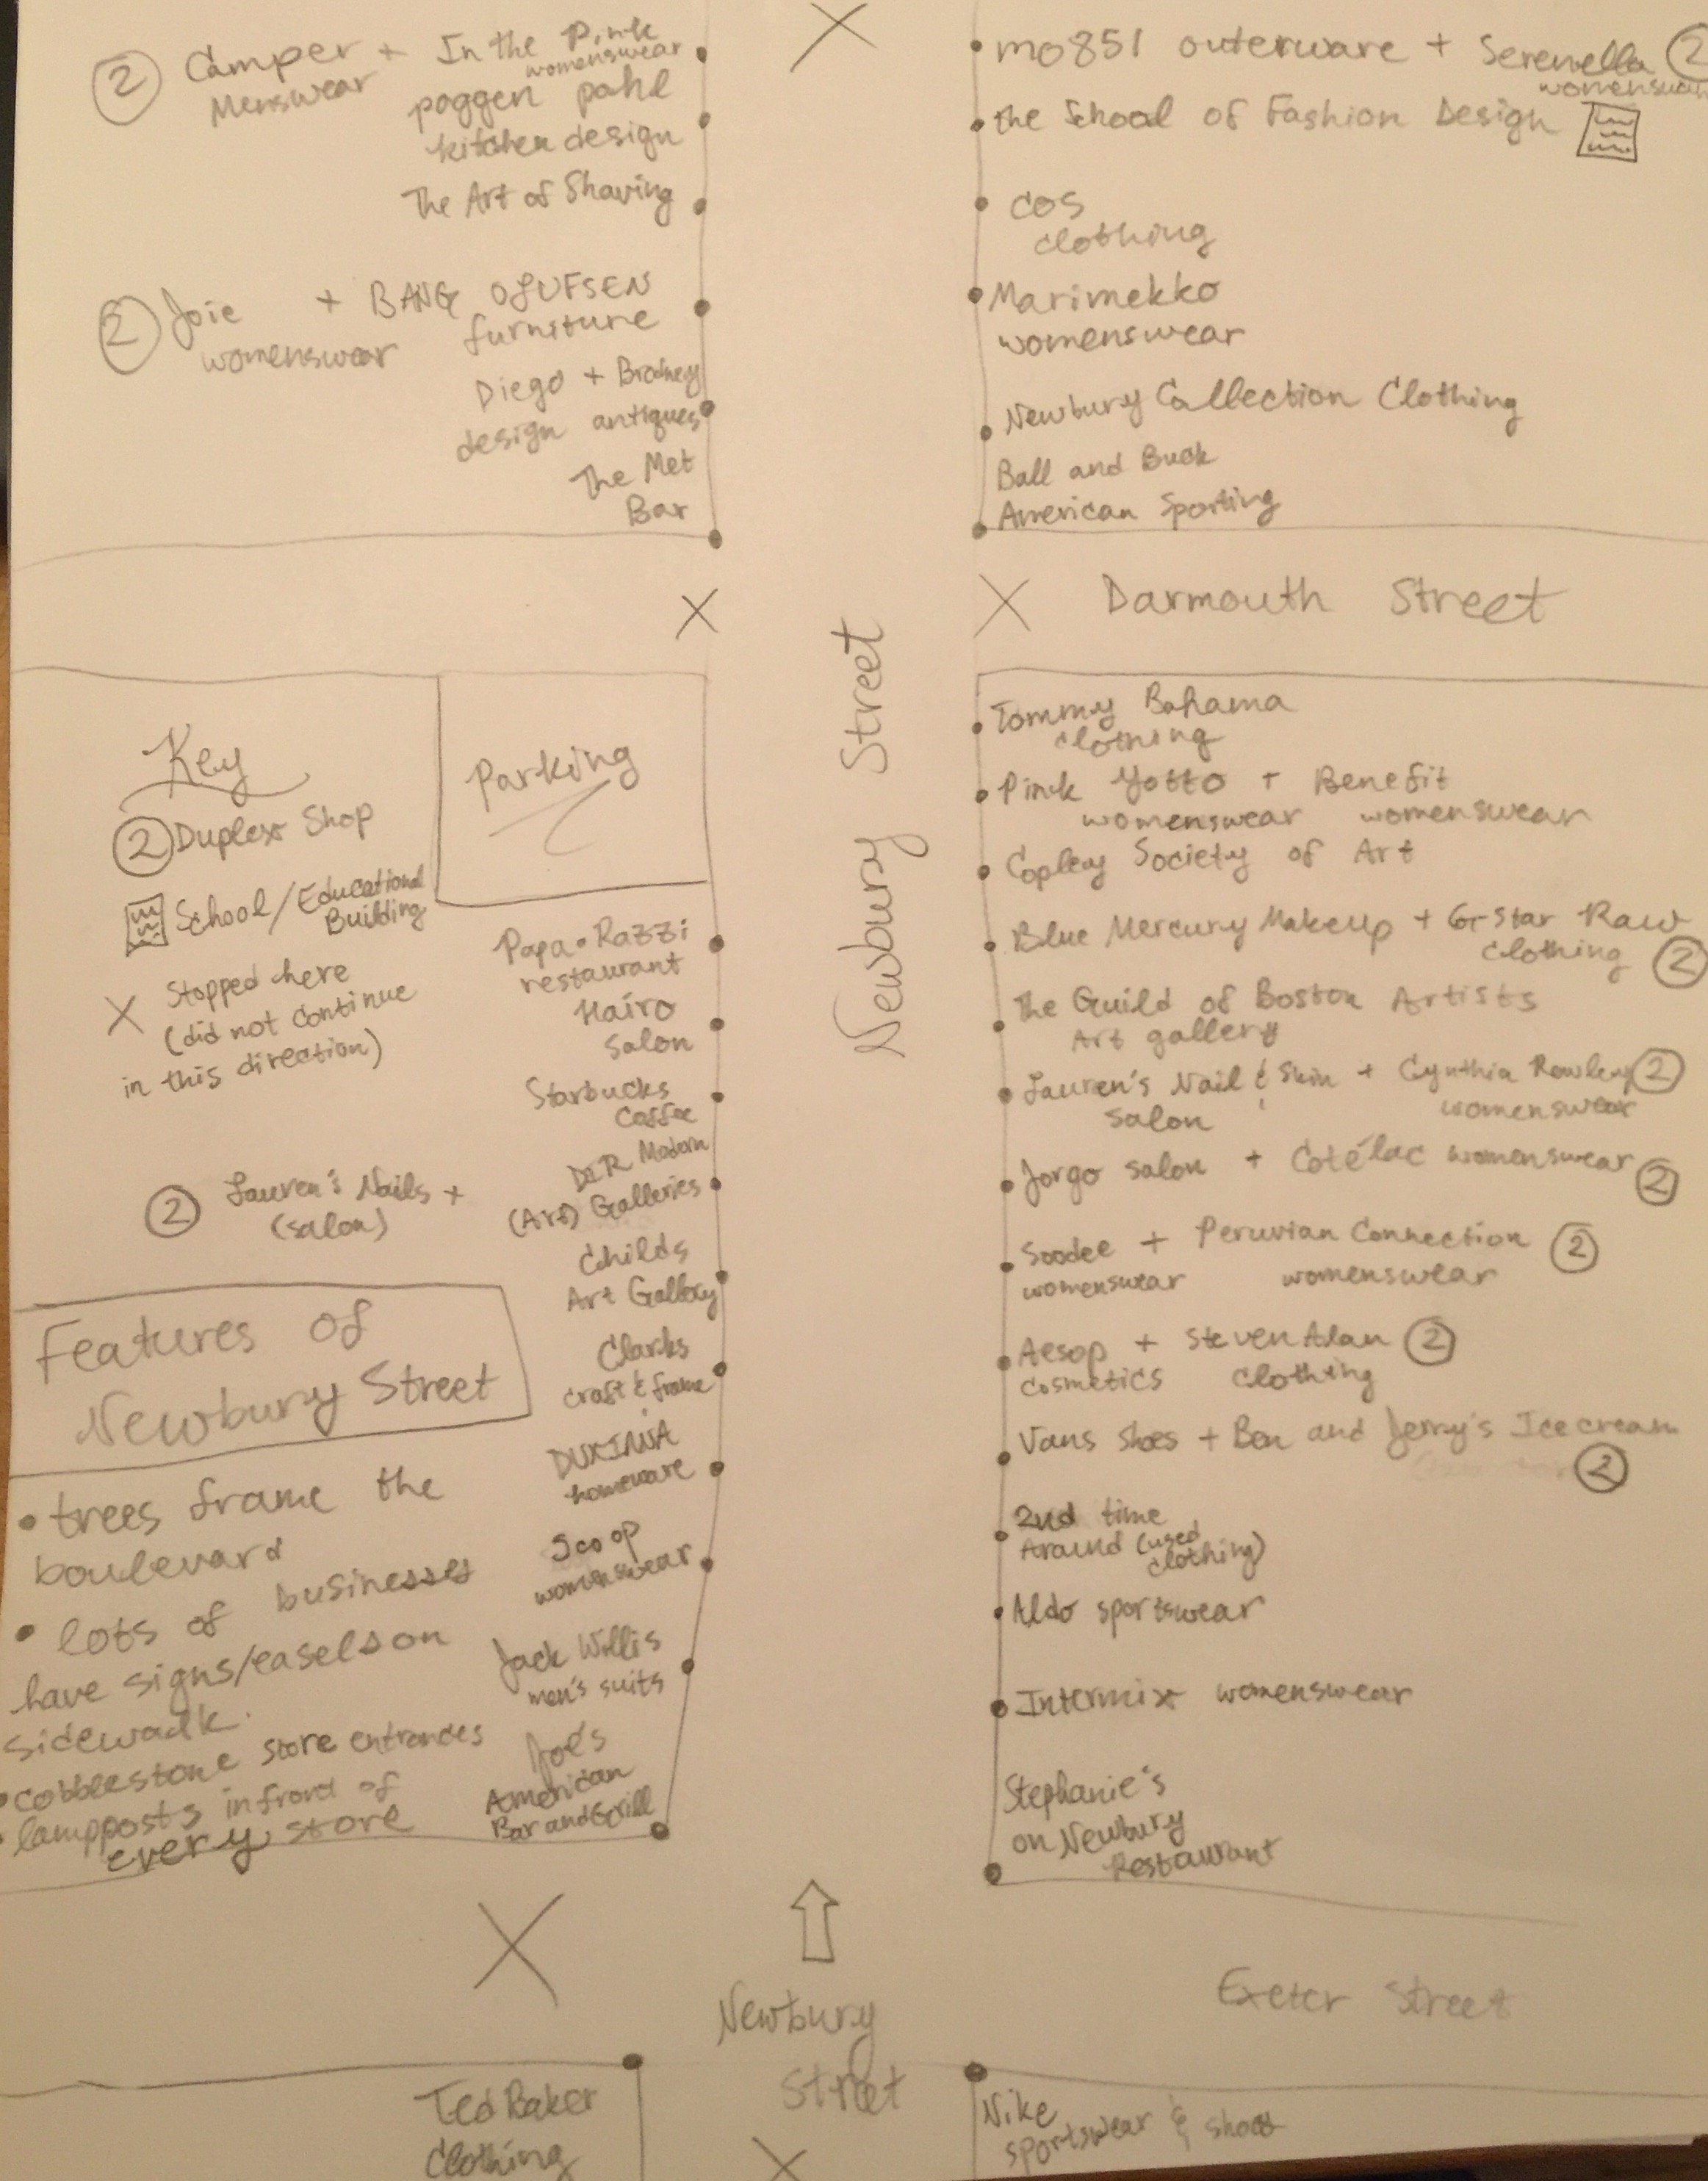 2 Camper + In the Pink
Menswear womenswear
poggen pohl
kitchen design
The Art of Shaving
2 Joie + BANG OLUFSEN
womenswear furniture
Diego + Brodney
design antiques
The Met
Bar
mo851 outerware + Serenella 2
womenswear
the School of Fashion Design
COS
clothing
Marimekko
womenswear
Newbury Collection Clothing
Ball and Buck
American Sporting
X
X
X
Darmouth Street
Newbury Street
Key
2 Duplex Shop
School/Educational
Building
X Stopped here
(did not continue
in this direction)
Parking
Papa•Razzi
restaurant
Hairo
Salon
Starbucks
Coffee
2 Lauren's Nails + DTR Modern
(salon) (Art) Galleries
Childs
Art Gallery
Clarks
craft & frame
DUXIANA
homeware
Scoop
womenswear
Jack Willis
men's suits
Joe's
American
Bar and Grill
Features of
Newbury Street
• trees frame the
boulevard
• lots of businesses
have signs/easels on
sidewalk.
• cobblestone store entrances
• lampposts in front of
every store
Tommy Bahama
clothing
Pink Yotto + Benefit
womenswear womenswear
Copley Society of Art
Blue Mercury Makeup + G-Star Raw
clothing 2
The Guild of Boston Artists
Art gallery
Lauren's Nail & Skin + Cynthia Rowley 2
salon womenswear
Jorgo salon + Cotélac womenswear 2
Soodee + Peruvian Connection 2
womenswear womenswear
Aesop + Steven Alan 2
cosmetics clothing
Vans shoes + Ben and Jerry's Ice cream
2
2nd time
Around (used
clothing)
Aldo sportswear
Intermix womenswear
Stephanie's
on Newbury
Restaurant
X
Exeter Street
Newbury
Street
Ted Baker
clothing
X
Nike
sportswear & shoes